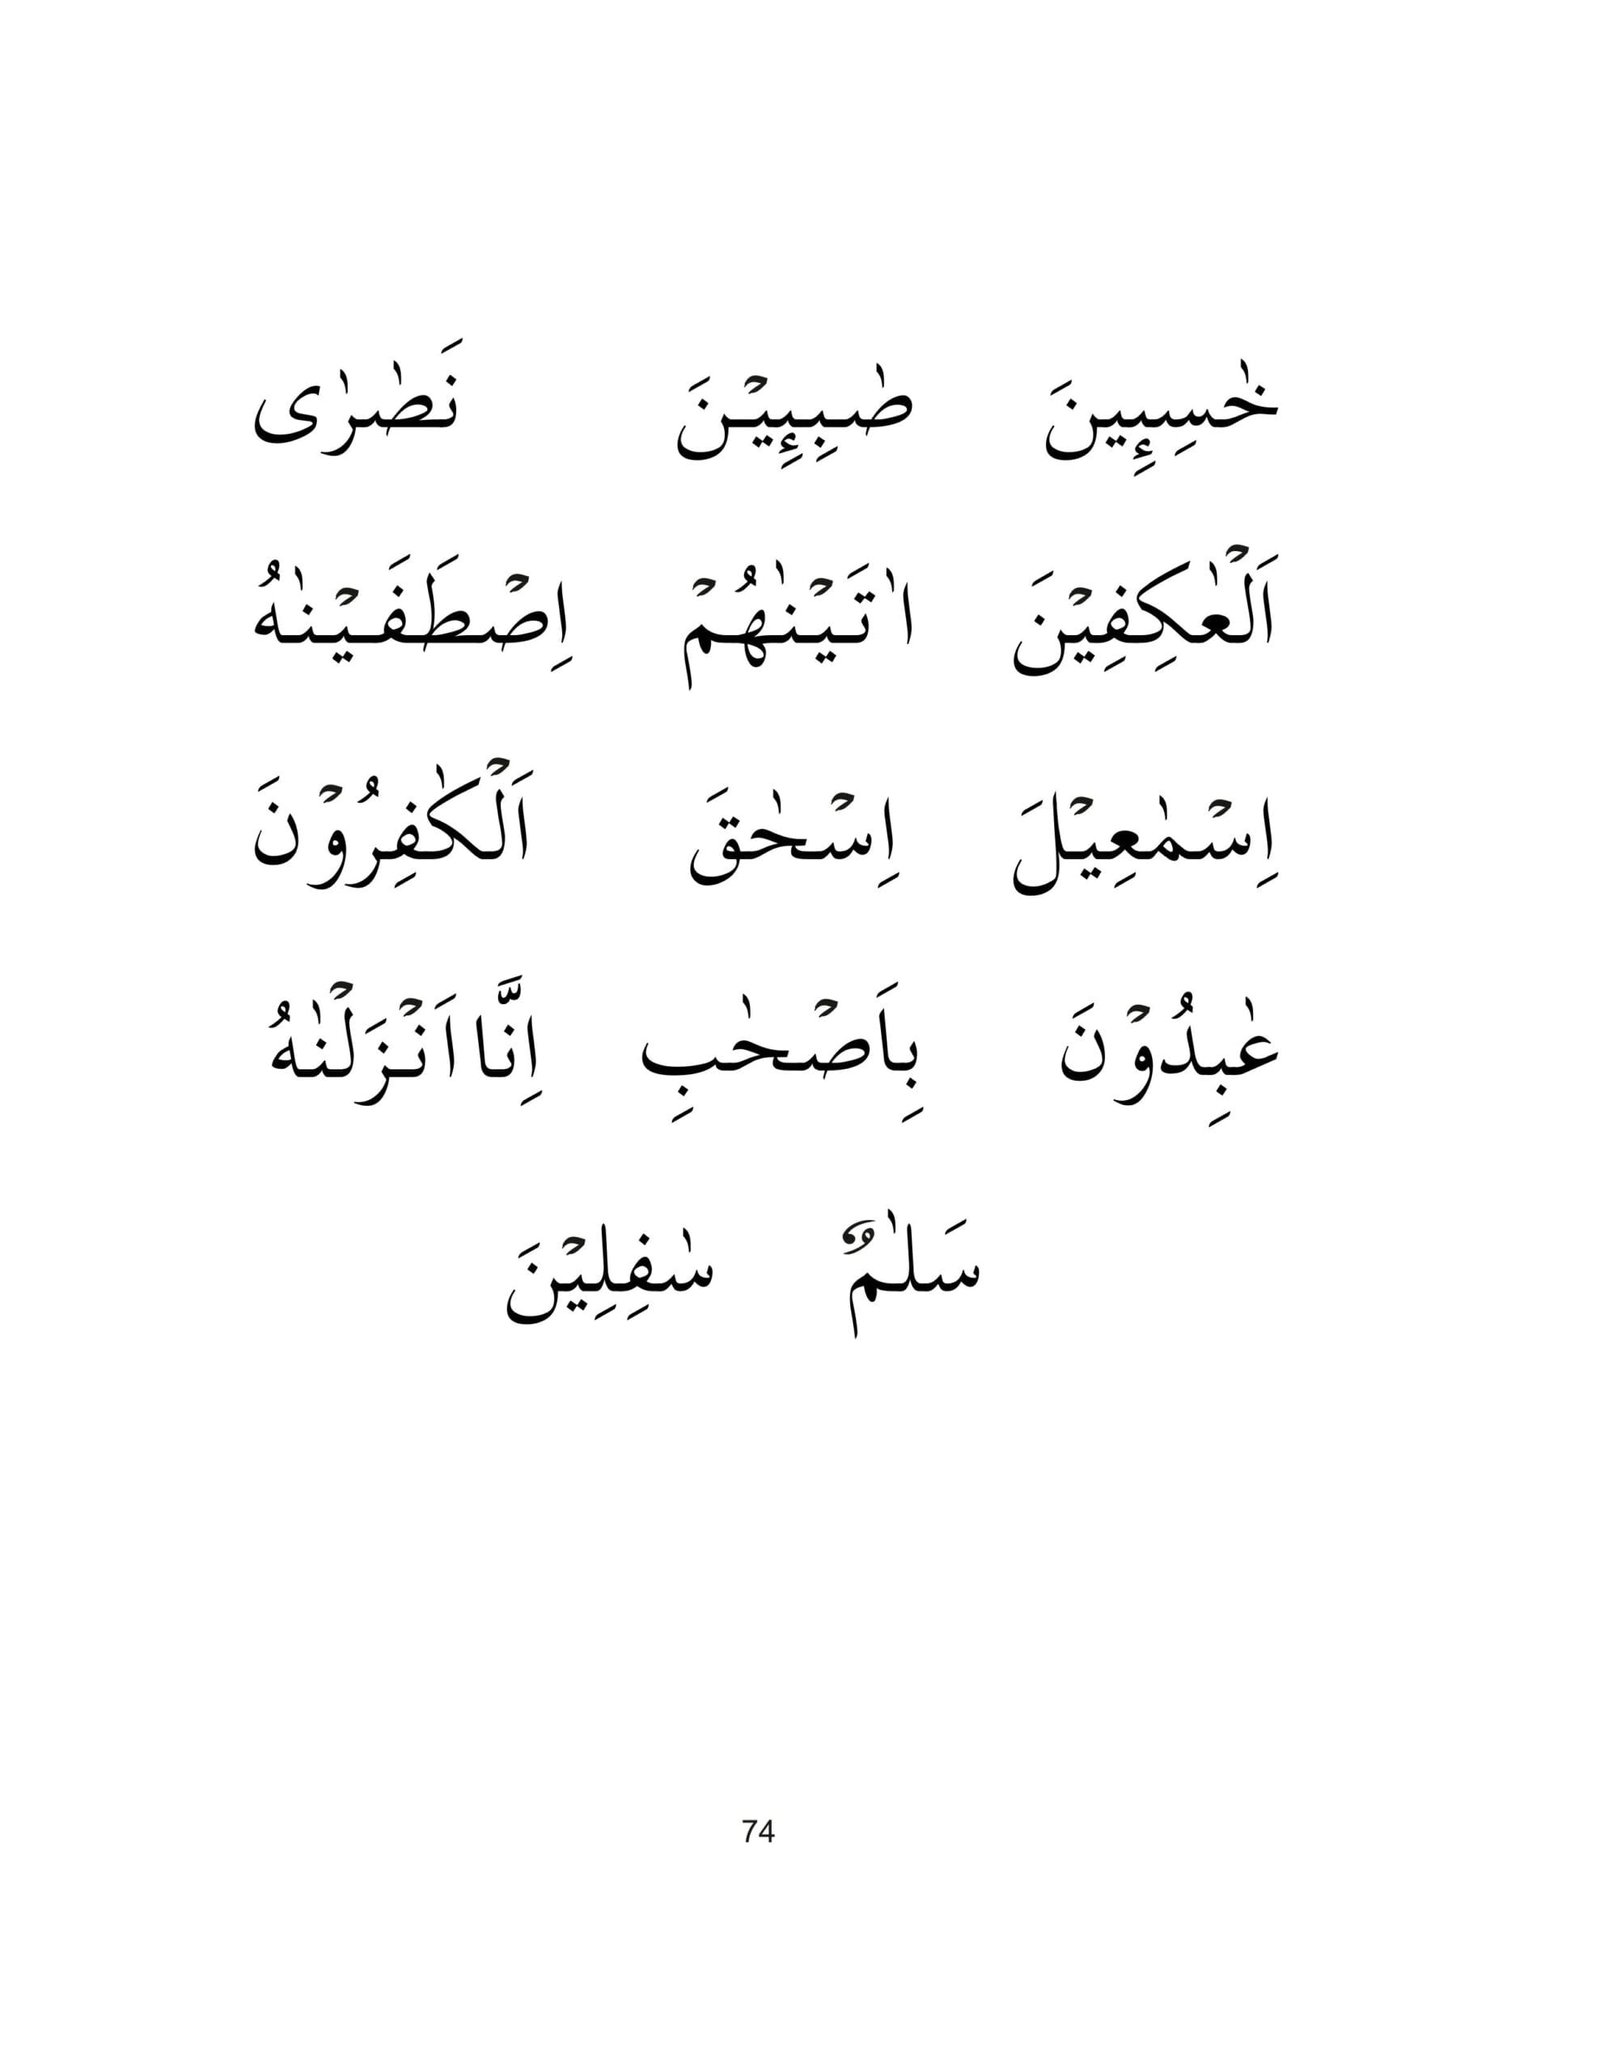 خٰسِـِٕينَ طٰبِـِٕيْنَ نَطٰرٰى
اَلْعٰكِفِيْنَ اٰتَيْنٰهُمْ اِصْطَفَيْنٰهُ
اِسْمٰعِيْلَ اِسْحٰقَ اَلْكٰفِرُوْنَ
عٰبِدُوْنَ بِاَصْحٰبِ اِنَّا اَنْزَلْنٰهُ
سَلٰمٌ سٰفِلِيْنَ
74